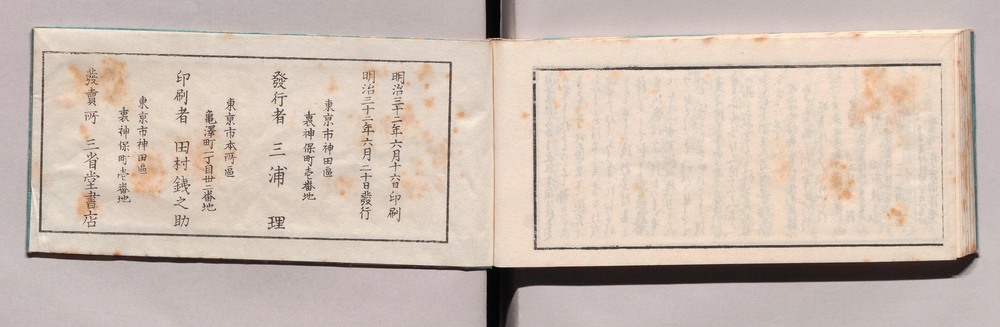 明治三十二年六月十六日印刷
明治三十二年六月二十日發行
東京市神田區
裏神保町壱番地
發行者 三浦 理
東京市本所區
龜澤町一丁目廿二番地
印刷者 田村銕之助
東京市神田區
裏神保町壱番地
發賣所 三省堂書店